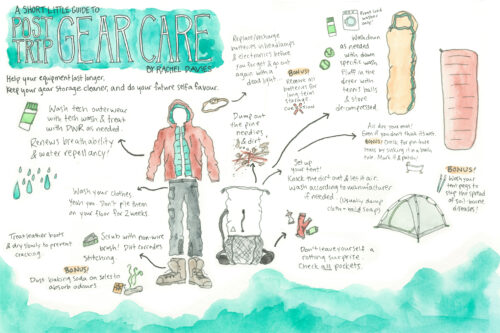 A SHORT LITTLE GUIDE TO
POST
TRIP
GEAR CARE
BY RACHEL DAVIES
Help your equipment last longer,
Keep your gear storage cleaner, and do your future self a favour.
Wash tech outerwear
with tech wash & treat
with DWR as needed.
Renews breathability
& water repellancy!
Wash your clothes.
Yeah you. Don't pile them
on your floor for 2 weeks
Treat leather boots
& dry slowly to prevent
cracking.
Scrub with non-wire
brush! Dirt corrodes
stitching.
BONUS!
Dust baking soda on soles to
absorb odours.
Replace/recharge
batteries in headlamps
& electronics before
you forget & go out
again with a
dead light.
BONUS!
Remove all
batteries for
long term
storage.
Dump out
the pine
needles
& dirt!
Set up
your tent!
Knock the dirt out & let it air.
Wash according to manufacturer
if needed.
(Usually damp
cloth + mild soap)
Don't leave yourself a
rotting surprise.
Check all pockets.
Wash down
as needed
with down
specific wash.
Fluff in the
dryer with
tennis balls
& store
de-compressed.
Air dry your mat!
Even if you don't think it's wet.
BONUS! Check for pinhole
leaks by sinking it in a bath
tub. Mark it & patch!
BONUS!
Wash your
tent pegs to
stop the spread
of soil-borne
diseases!